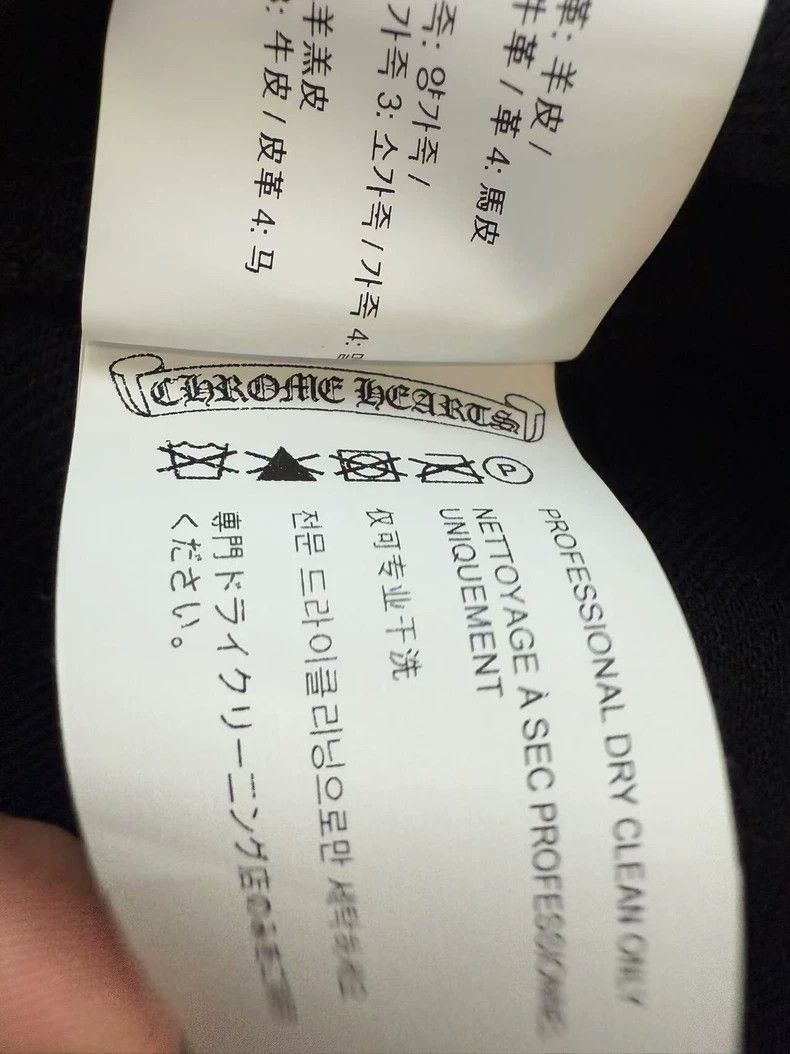 革: 羊皮 /
牛革 / 革 4: 馬皮
죽: 양가죽 /
가죽 3: 소가죽 / 가죽 4:
羊羔皮
3: 牛皮 / 皮革 4: 马
CHROME HEARTS
P
PROFESSIONAL DRY CLEAN ONLY
NETTOYAGE À SEC
UNIQUEMENT
仅可专业干洗
전문 드라이클리닝으로만
専門ドライクリーニング店
ください。